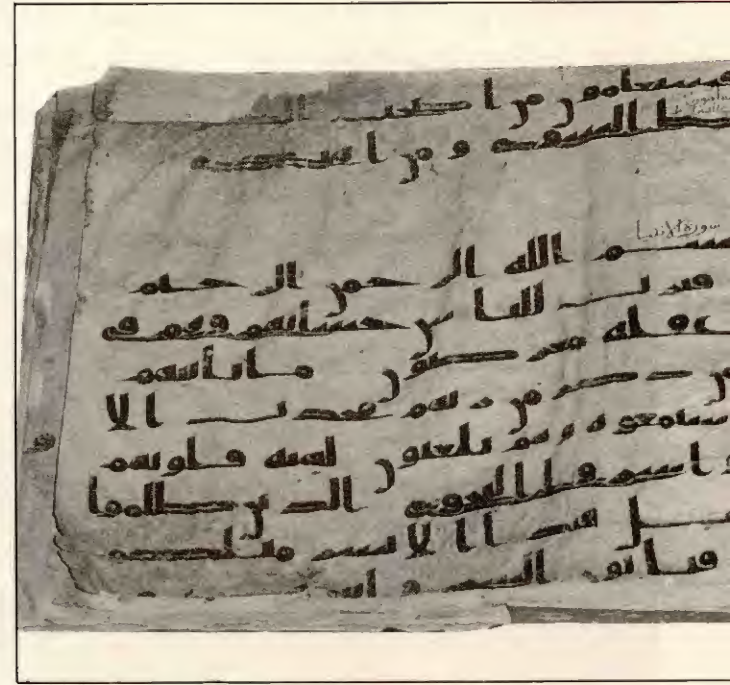 فستعلمون من اصحب الصر
ط السوى ومن اهتدى
سورة الانبيا
بسم الله الرحمن الرحيم
اقترب للناس حسابهم وهم فى
غفلة معرضون ما يأتيهم
من ذكر من ربهم محدث الا
استمعوه وهم يلعبون لهية قلوبهم
و اسروا النجوى الذين ظلموا
هل هذا الا بشر مثلكم
افتاتون السحر و انتم